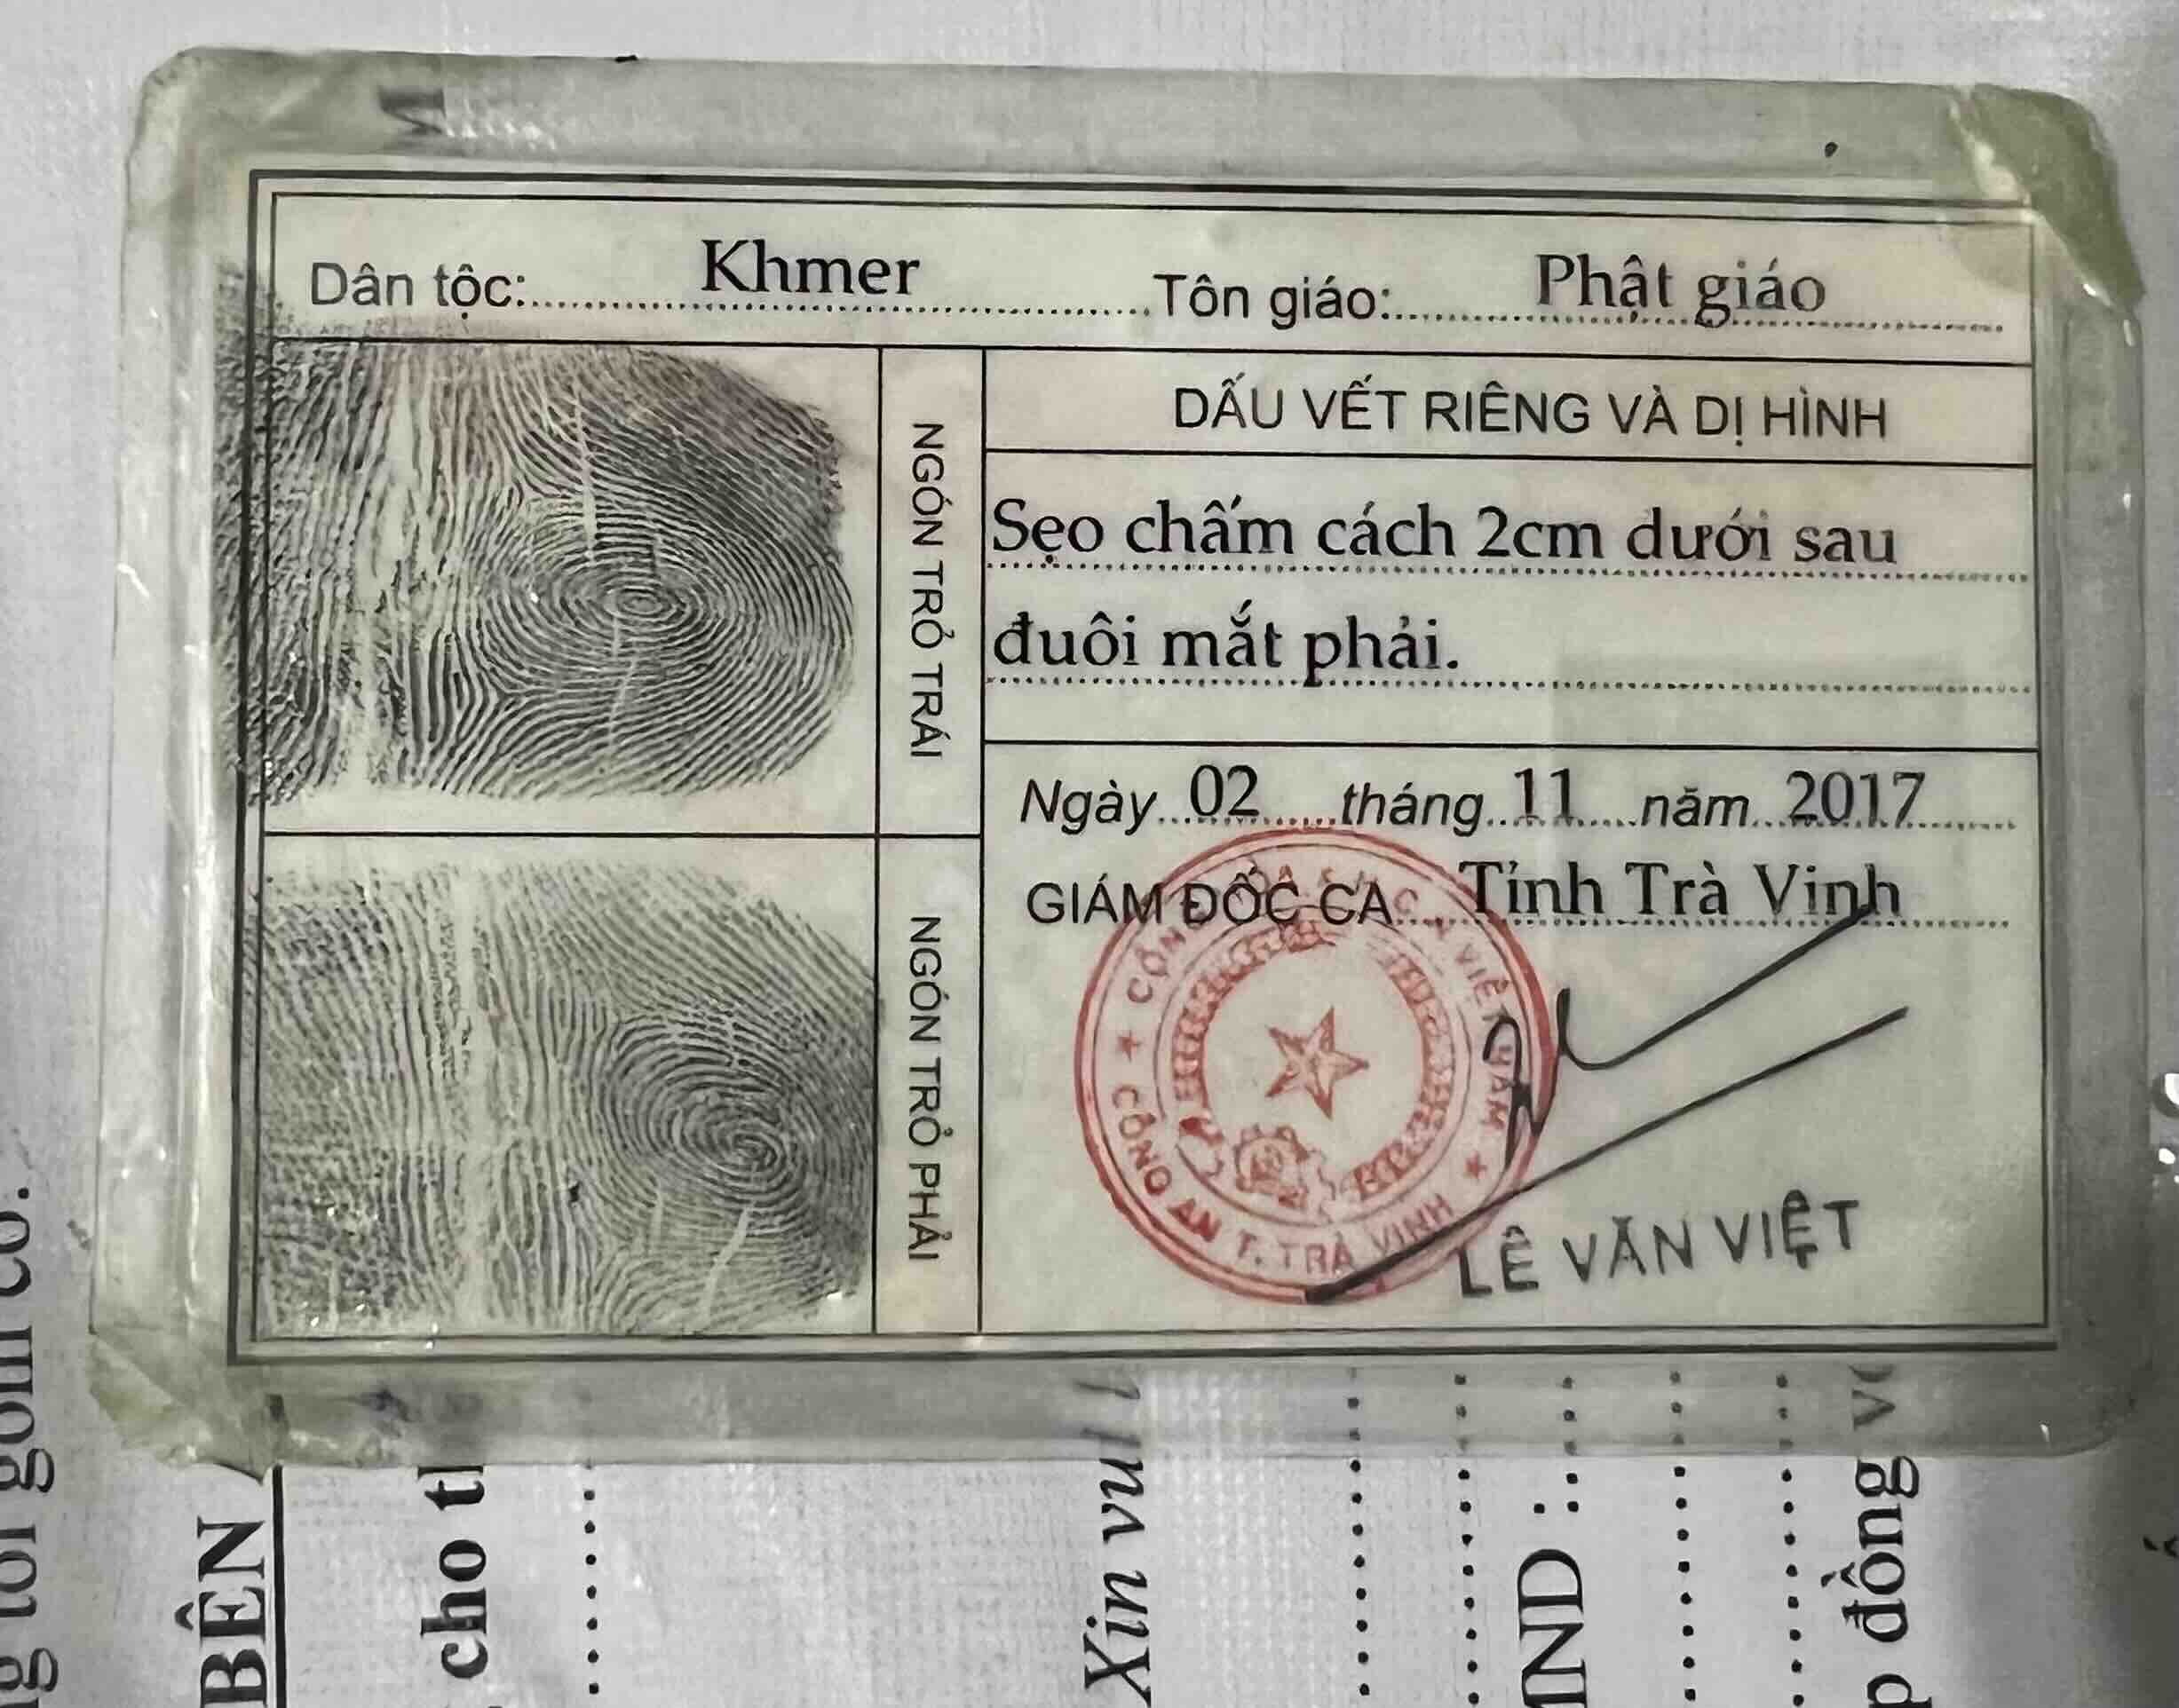 Dân tộc: Khmer Tôn giáo: Phật giáo
NGÓN TRỎ TRÁI
NGÓN TRỎ PHẢI
DẤU VẾT RIÊNG VÀ DỊ HÌNH
Sẹo chấm cách 2cm dưới sau
đuôi mắt phải.
Ngày 02 tháng 11 năm 2017
GIÁM ĐỐC CA Tỉnh Trà Vinh
VIỆT NAM
CÔNG AN T. TRÀ VINH
LÊ VĂN VIỆT
BÊN
cho
Xin
đồng